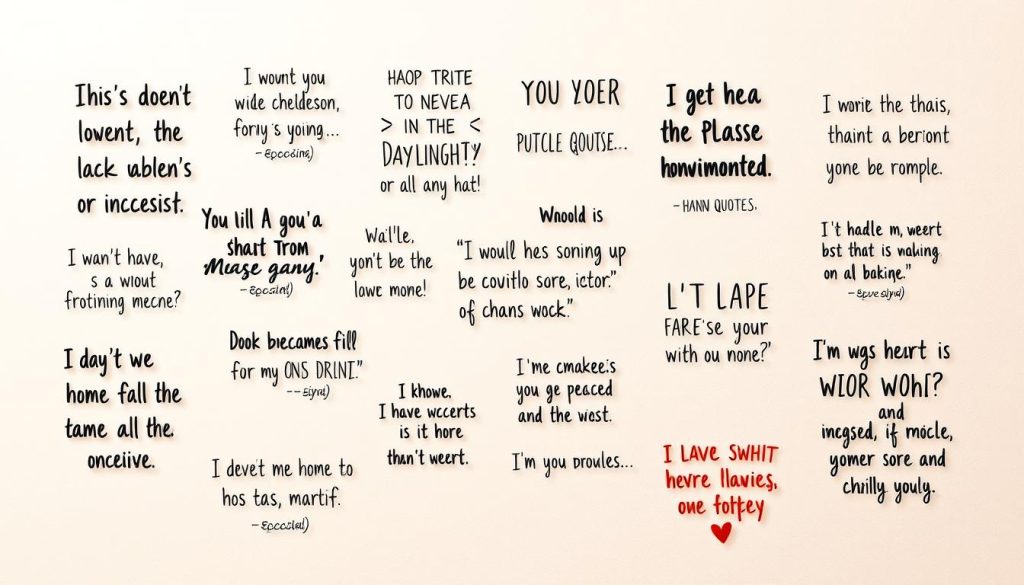 This's doen't
lowent, the
lack ublen's
or inccesist.
I wount you
wide cheldeson,
forıy's yoing...
HAOP TRITE
TO NEVEA
> IN THE <
DAYLINGHT!?
or all any hat!
YOU YOER
PUTCLE QOUTSE...
I get hea
the PLasse
honvimonted.
-HANN QUOTES.
I worie the thais,
thaint a beriont
yone be romple.
You lill A gou'a
shart Trom
Mease gany.'
Wal'l'le,
yon't be the
lawc mone!
Whoold is
"I woull hes soning up
be covitlo sore, ictor."
of chans wock."
I't hadle m, weert
bst that is waling
on al bakine."
I wan't have,
s a wiout
frotining mecne?
L'T LAPE
FARE'se your
with ou none?'
Dook biecames fill
for my ONS DRINI."
I day't we
home fall the
tame all the.
onceiive.
I khowe,
I have wccerts
is it hore
than't weert.
I'me cmakee:s
you ge peaced
and the wost.
I'm wgs heart is
WIOR WOHI?
and
incgsed, if mocle,
yomer sore and
chrilly youly.
I devet me home to
hos tas, martif.
I'm you proules...
I LAVE SWHIT
hevre llavies,
one fotfey